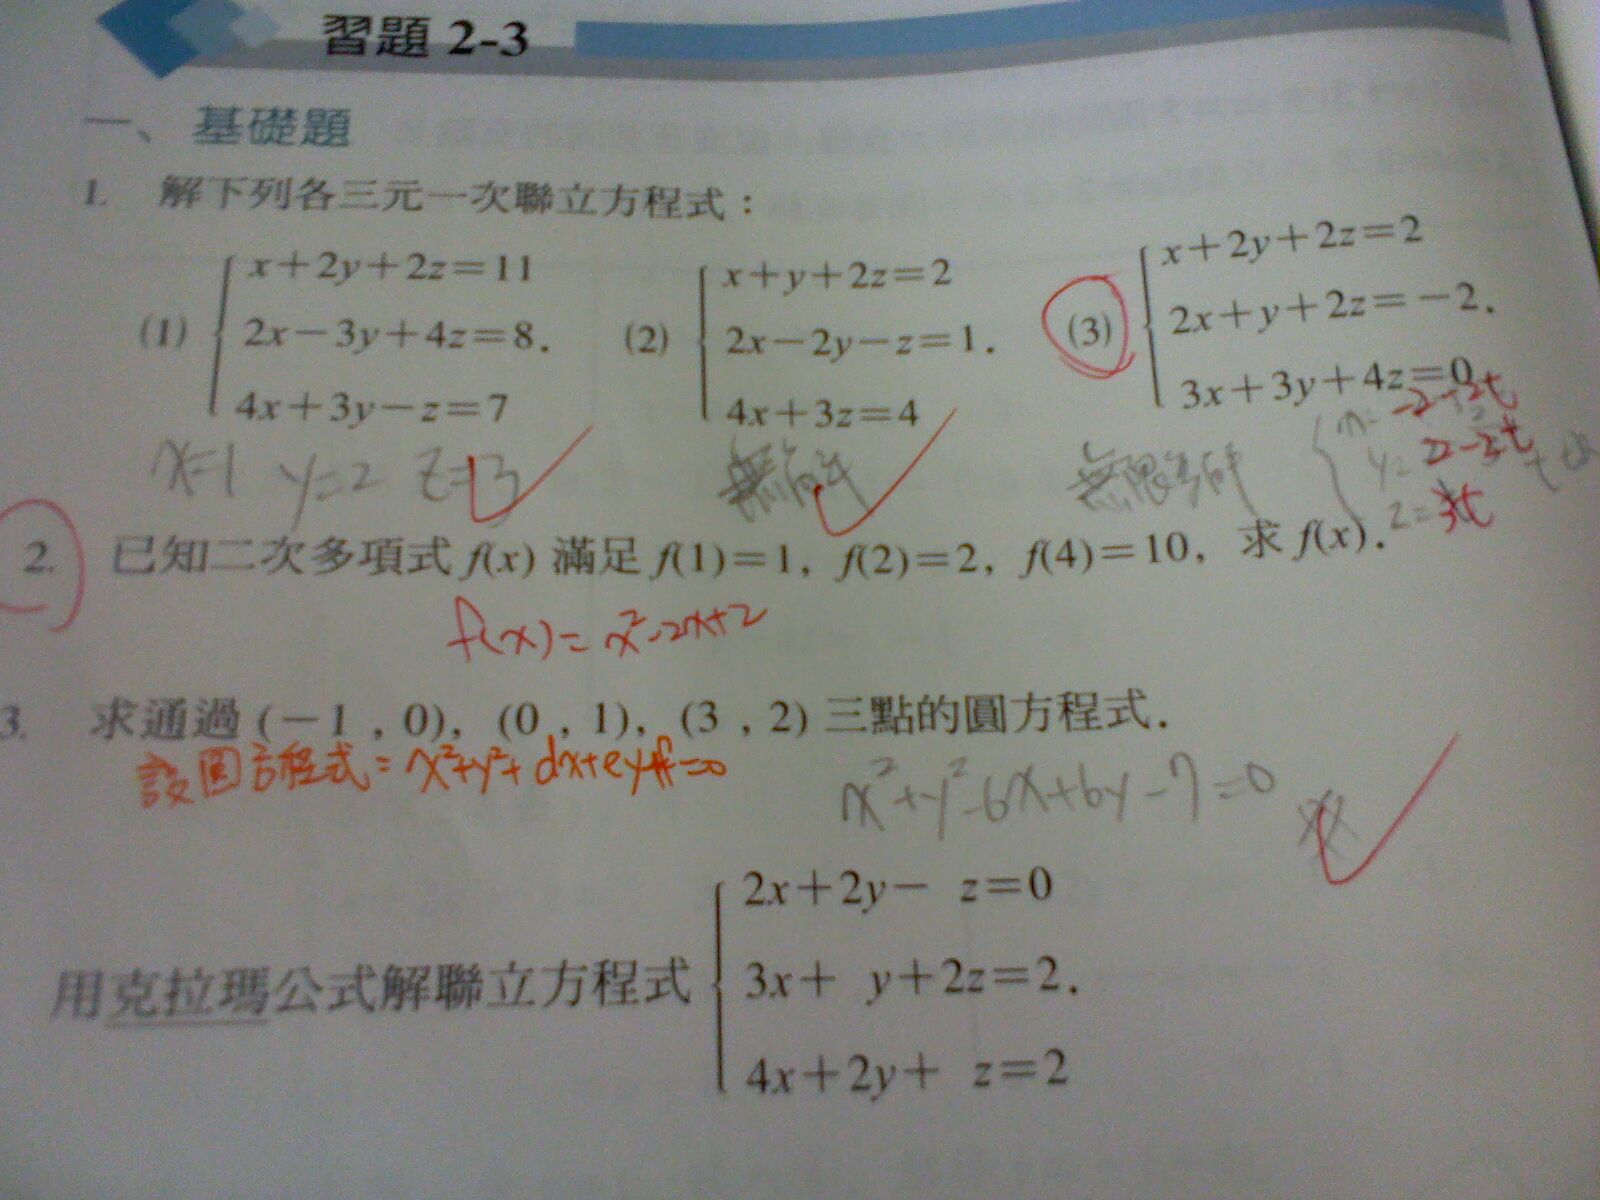 習題 2-3
一、基礎題
1. 解下列各三元一次聯立方程式：
(1) x+2y+2z=11
2x-3y+4z=8.
4x+3y-z=7
(2) x+y+2z=2
2x-2y-z=1.
4x+3z=4
(3) x+2y+2z=2
2x+y+2z=-2.
3x+3y+4z=0
x=1 y=2 z=3
無解
無限多解
x= -2-2t
y= 2-2t
z= 3t
2. 已知二次多項式 f(x) 滿足 f(1)=1, f(2)=2, f(4)=10, 求 f(x).
f(x)=x²-2x+2
3. 求通過 (-1,0), (0,1), (3,2) 三點的圓方程式.
設圓方程式=x²+y²+dx+ey+f=0
x²+y²-6x+6y-7=0
用克拉瑪公式解聯立方程式
2x+2y- z=0
3x+ y+2z=2.
4x+2y+ z=2